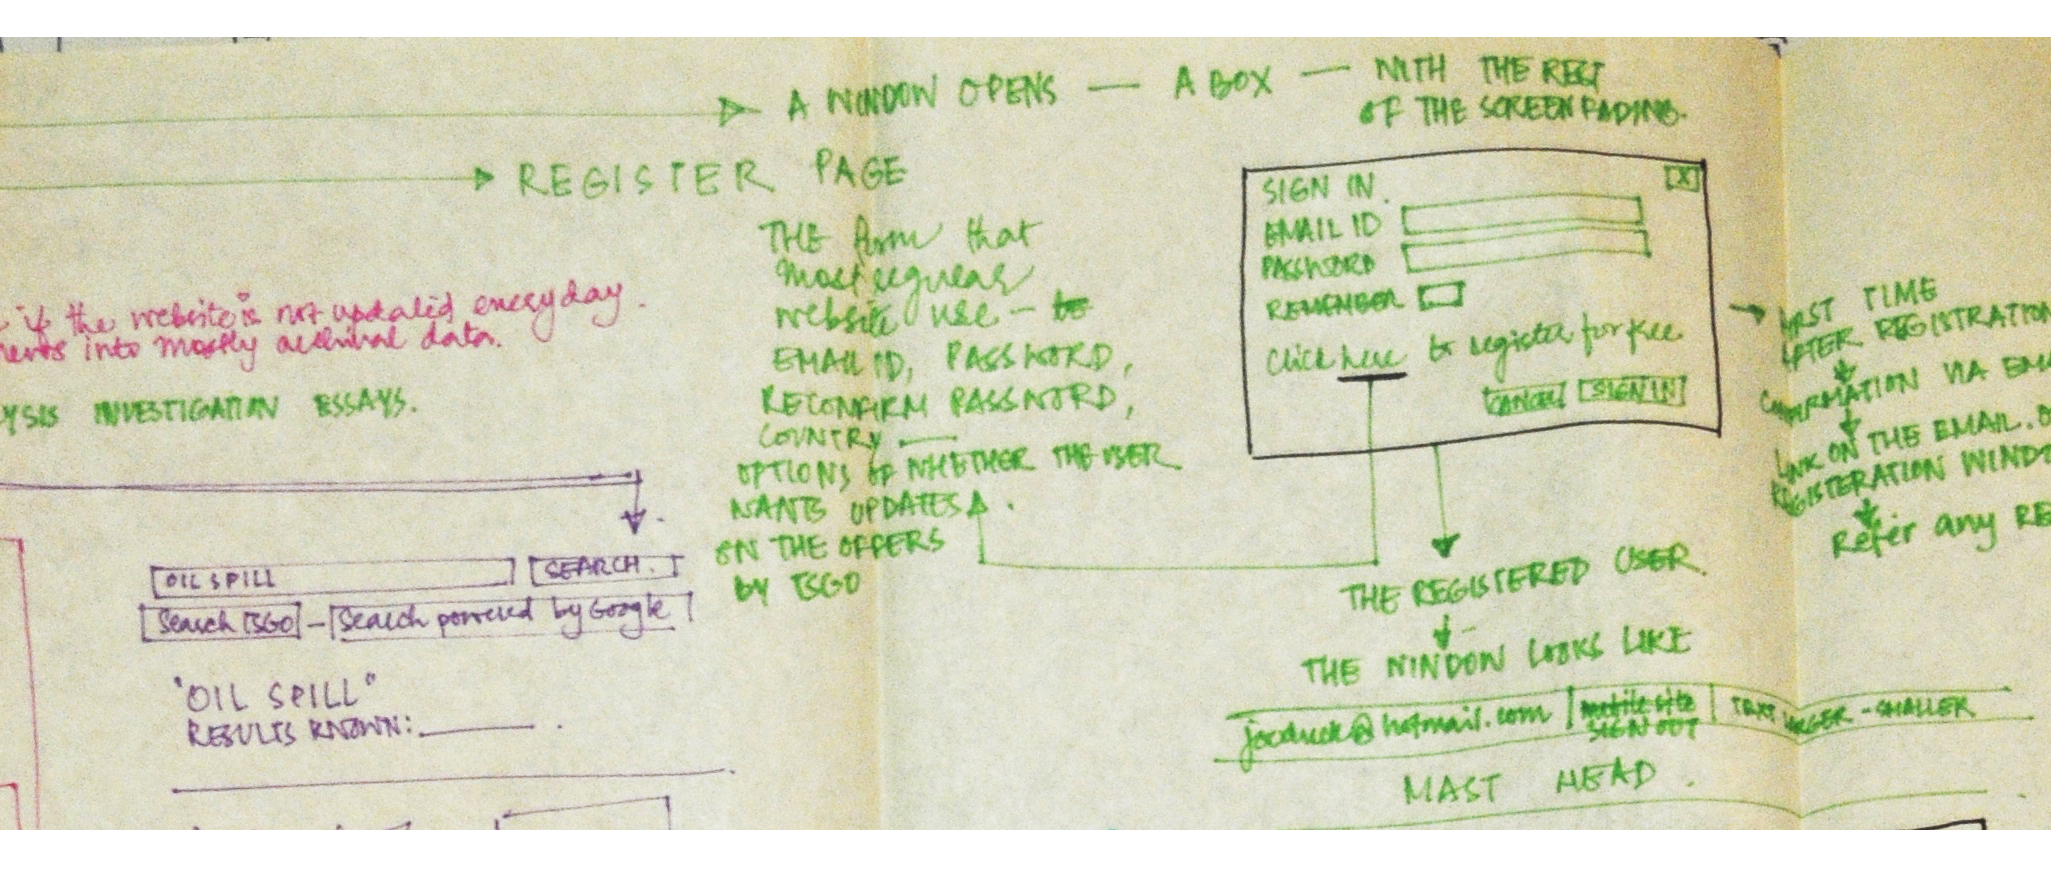 A WINDOW OPENS — A BOX — WITH THE REST
OF THE SCREEN FADING.
REGISTER PAGE
THE form that
most regular
website use —
EMAIL ID, PASSWORD,
RECONFIRM PASSWORD,
COUNTRY —
OPTIONS OF WHETHER THE USER
WANTS UPDATES
ON THE OFFERS
BY TSGO
SIGN IN.
X
EMAIL ID
PASSWORD
REMEMBER
Click here to register for free
CANCEL SIGN IN
FIRST TIME
AFTER REGISTRATION
CONFIRMATION VIA
LINK ON THE EMAIL.
REGISTERATION
Refer any
if the website is not updated everyday.
into mostly archival data.
INVESTIGATION ESSAYS.
OIL SPILL SEARCH.
Search TSGO — Search powered by Google
"OIL SPILL"
RESULTS KNOWN:
THE REGISTERED USER.
THE WINDOW LOOKS LIKE
@hotmail.com mobile site TEXT LARGER - SMALLER
SIGN OUT
MAST HEAD.